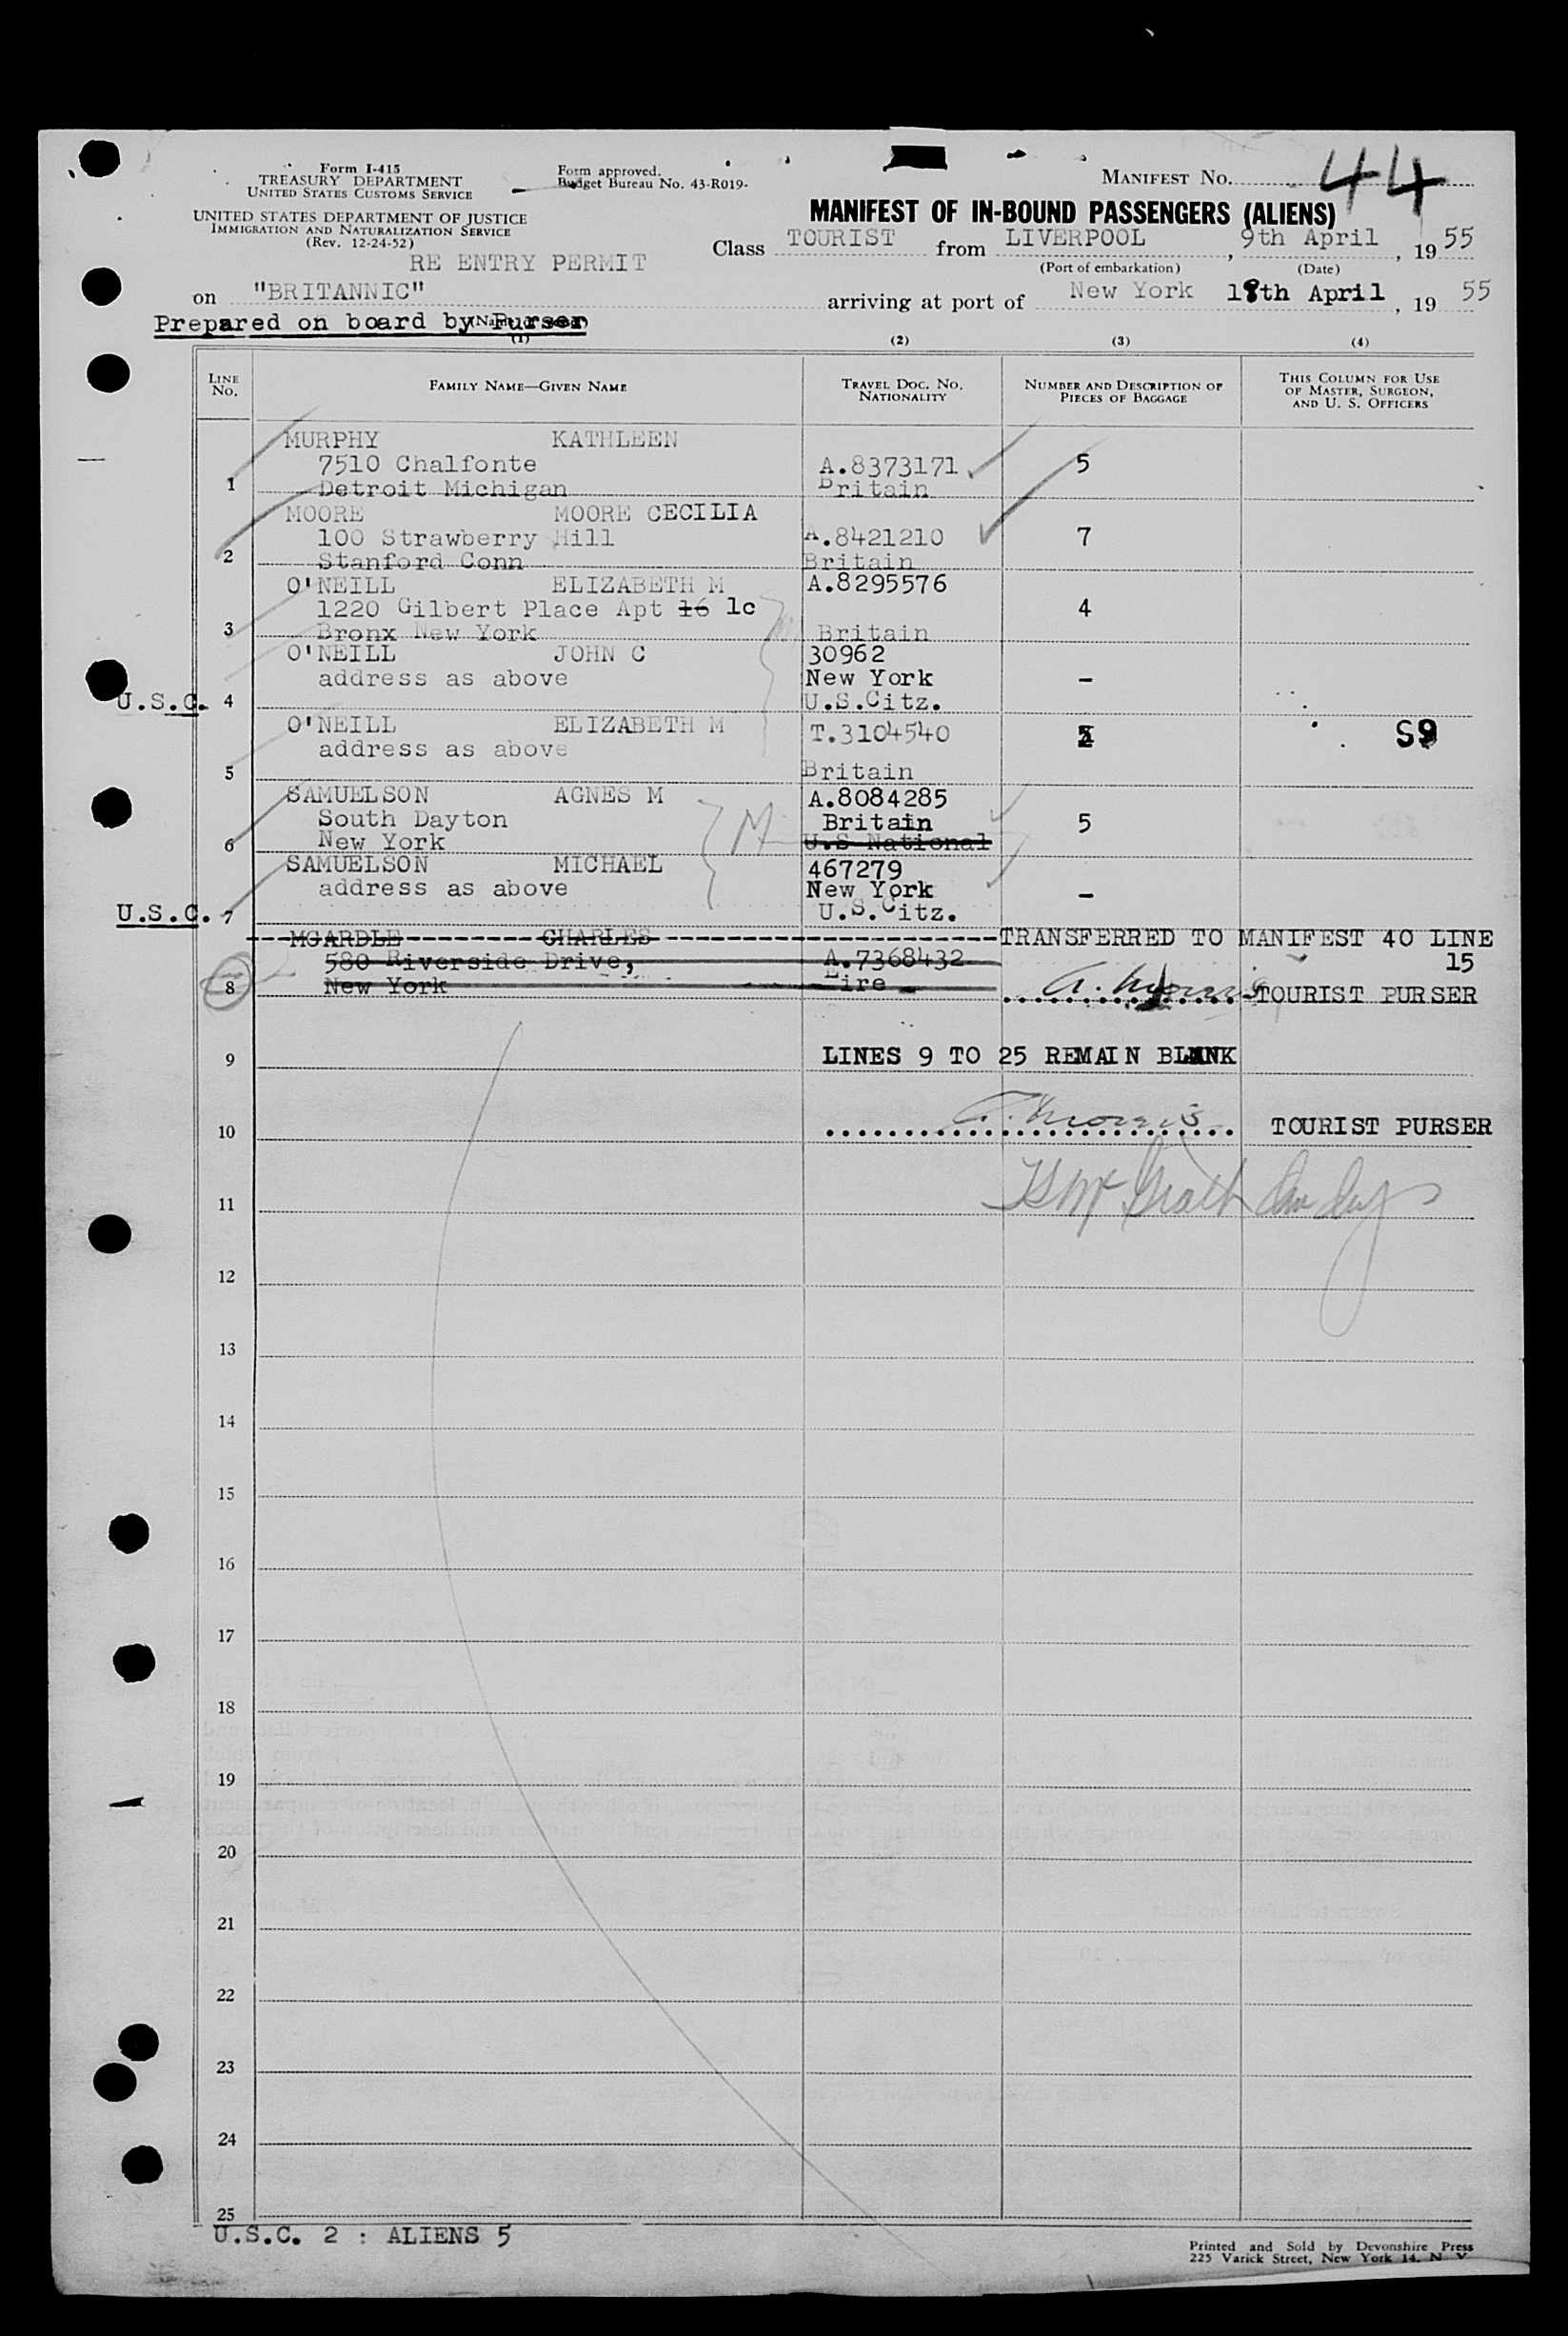 Form I-415
TREASURY DEPARTMENT
UNITED STATES CUSTOMS SERVICE
UNITED STATES DEPARTMENT OF JUSTICE
IMMIGRATION AND NATURALIZATION SERVICE
(Rev. 12-24-52)
Form approved.
Budget Bureau No. 43-R019.
MANIFEST NO. 44
MANIFEST OF IN-BOUND PASSENGERS (ALIENS)
Class TOURIST from LIVERPOOL, 9th April, 1955
(Port of embarkation) (Date)
RE ENTRY PERMIT
on "BRITANNIC" arriving at port of New York 18th April, 1955
Prepared on board by Purser
(1) (2) (3) (4)
LINE NO. FAMILY NAME—GIVEN NAME TRAVEL DOC. NO. NATIONALITY NUMBER AND DESCRIPTION OF PIECES OF BAGGAGE THIS COLUMN FOR USE OF MASTER, SURGEON, AND U. S. OFFICERS
MURPHY KATHLEEN
7510 Chalfonte A.8373171 5
1 Detroit Michigan Britain
MOORE MOORE CECILIA
100 Strawberry Hill A.8421210 7
2 Stanford Conn Britain
O'NEILL ELIZABETH M A.8295576
1220 Gilbert Place Apt 16 1c 4
3 Bronx New York Britain
O'NEILL JOHN C 30962
address as above New York -
U.S.C. 4 U.S.Citz.
O'NEILL ELIZABETH M T.3104540 2 S9
address as above
5 Britain
SAMUELSON AGNES M A.8084285
South Dayton Britain 5
6 New York U.S National
SAMUELSON MICHAEL 467279
address as above New York -
U.S.C. 7 U.S.Citz.
MCARDLE CHARLES TRANSFERRED TO MANIFEST 40 LINE
580 Riverside Drive, A.7368432 15
8 New York Eire A. Morris TOURIST PURSER
9 LINES 9 TO 25 REMAIN BLANK
10 A. Morris TOURIST PURSER
11
12
13
14
15
16
17
18
19
20
21
22
23
24
25
U.S.C. 2 : ALIENS 5
Printed and Sold by Devonshire Press
225 Varick Street, New York 14, N. Y.